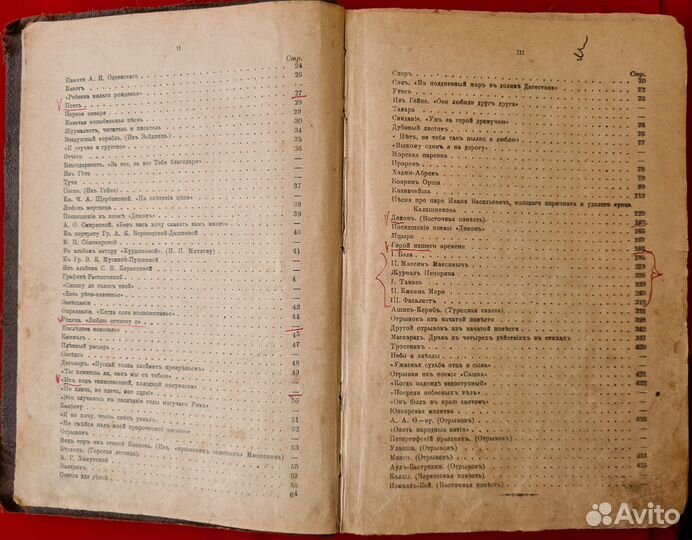 II
Стр.
24
Памяти А. И. Одоевскаго 26
Казотъ
«Ребенка милаго рожденье» 27
Поэтъ 28
Первое января 29
Казачья колыбельная пѣснь 30
Журналистъ, читатель и писатель 34
Воздушный корабль. (Изъ Зейдлица) 35
«И скучно и грустно» 36
Отчего —
Благодарность. «За все, за все Тебя благодарю» —
Изъ Гёте —
Тучи —
Сосна (Изъ Гейне) 37
Кн. М. А. Щербатовой. «На свѣтскія цѣпи» —
Любовь мертвеца 38
Посвященіе къ поэмѣ «Демонъ» 39
А. О. Смирновой. «Безъ васъ хочу сказать вамъ много» —
Къ портрету Гр. А. К. Воронцовой-Дашковой 40
М. П. Соломирской —
Въ альбомъ автору «Курдюковой» (И. П. Мятлеву) 41
Къ Гр. Э. К. Мусиной-Пушкиной —
Изъ альбома С. Н. Карамзиной —
Графинѣ Растопчиной
«Слышу ли голосъ твой»
«Есть рѣчи—значенье»
Завѣщаніе 43
Оправданіе. «Когда одни воспоминанья» 44
Родина. «Люблю отчизну я»
Послѣднее новоселье 45
Кинжалъ
Плѣнный рыцарь
Сосѣдка
Договоръ. «Пускай толпа клеймитъ презрѣньемъ» 48
«Ты помнишь ли, какъ мы съ тобою» 49
«Изъ подъ таинственной, холодной полумаски» —
«Не плачь, не плачь, мое дитя!» —
«Это случилось въ послѣдніе годы могучаго Рима» 50
Казбеку
«И на хочу, чтобъ свѣтъ узналъ»
«Не смѣйся надъ моей пророческой тоскою»
Отрывокъ
Видъ горъ изъ степей Козлова. (Изъ «крымскихъ сонетовъ» Мицкевича)
Бѣглецъ. (Горская легенда) 55
А. Г. Хомутовой 57
Валерикъ 58
Сказка для дѣтей 64
III
Стр.
Споръ 70
Сонъ. «Въ полдневный жаръ въ долинѣ Дагестана» 72
Утесъ
Изъ Гейне. «Они любили другъ друга»
Тамара
Свиданіе. «Ужъ за горой дремучею» 74
Дубовый листокъ 76
«Нѣтъ, не тебя такъ пылко я люблю» 77
«Выхожу одинъ я на дорогу» —
Морская царевна —
Пророкъ
Хаджи-Абрекъ
Бояринъ Орша
Казначейша
Пѣсня про царя Ивана Васильевича, молодаго опричника и удалого купца
Калашникова
Демонъ. (Восточная повѣсть) 129
Посвященіе поэмы «Демонъ»
Мцыри
Герой нашего времени
I. Бэла 185
II. Максимъ Максимычъ 219
Журналъ Печорина 228
I. Тамань 229
II. Княжна Мери 240
III. Фаталистъ 312
Ашикъ-Керибъ. (Турецкая сказка) 321
Отрывокъ изъ начатой повѣсти 328
Другой отрывокъ изъ начатой повѣсти 342
Маскарадъ. Драма въ четырехъ дѣйствіяхъ въ стихахъ 347
Тростникъ
Небо и звѣзды
«Ужасная судьба отца и сына» —
Отрывки изъ поэмы «Сашка» 421
«Когда надеждѣ недоступный» 422
«Посреди небесныхъ тѣлъ» —
«Онъ былъ въ краю святомъ» —
Юнкерская молитва —
А. А. Ѳ—ну. (Отрывокъ) 423
«Опять народныя витіи» —
Петергофскій праздникъ. (Отрывокъ) —
Уланша. (Отрывокъ) —
Монго. (Отрывокъ) 424
Аулъ-Бастунджи. (Отрывокъ) —
Каллы. (Черкесская повѣсть) —
Измаилъ-Бей. (Восточная повѣсть) —
Avito